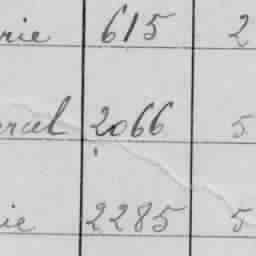 rie 615 2
arcel 2066 5
ie 2285 5